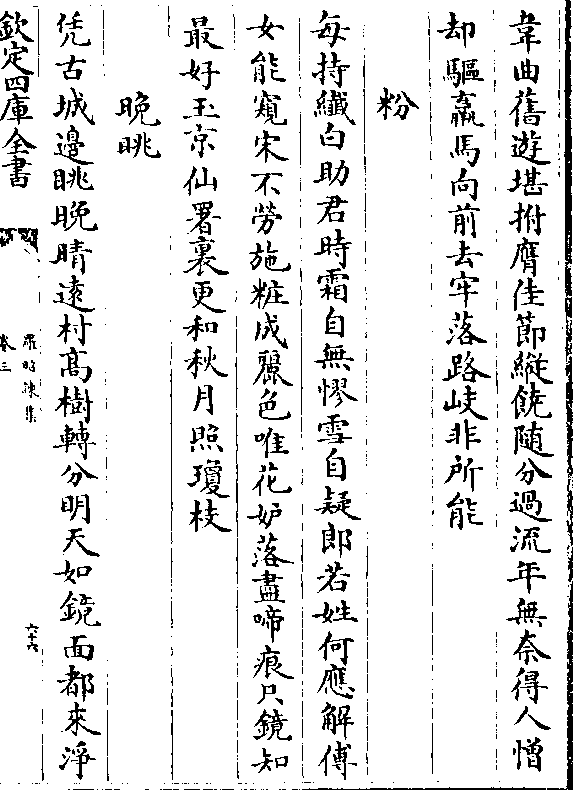 韋曲舊遊堪拊膺佳節縱饒隨分過流年無奈得人憎
却驅羸馬向前去牢落路岐非所能
粉
每持纖白助君時霜自無憀雪自疑郎若姓何應解傅
女能窺宋不勞施粧成麗色唯花妒落盡啼痕只鏡知
最好玉京仙署裏更和秋月照瓊枝
晚眺
凭古城邊眺晚晴遠村髙樹轉分明天如鏡面都來淨
欽定四庫全書
羅昭諫集
卷三
六十六